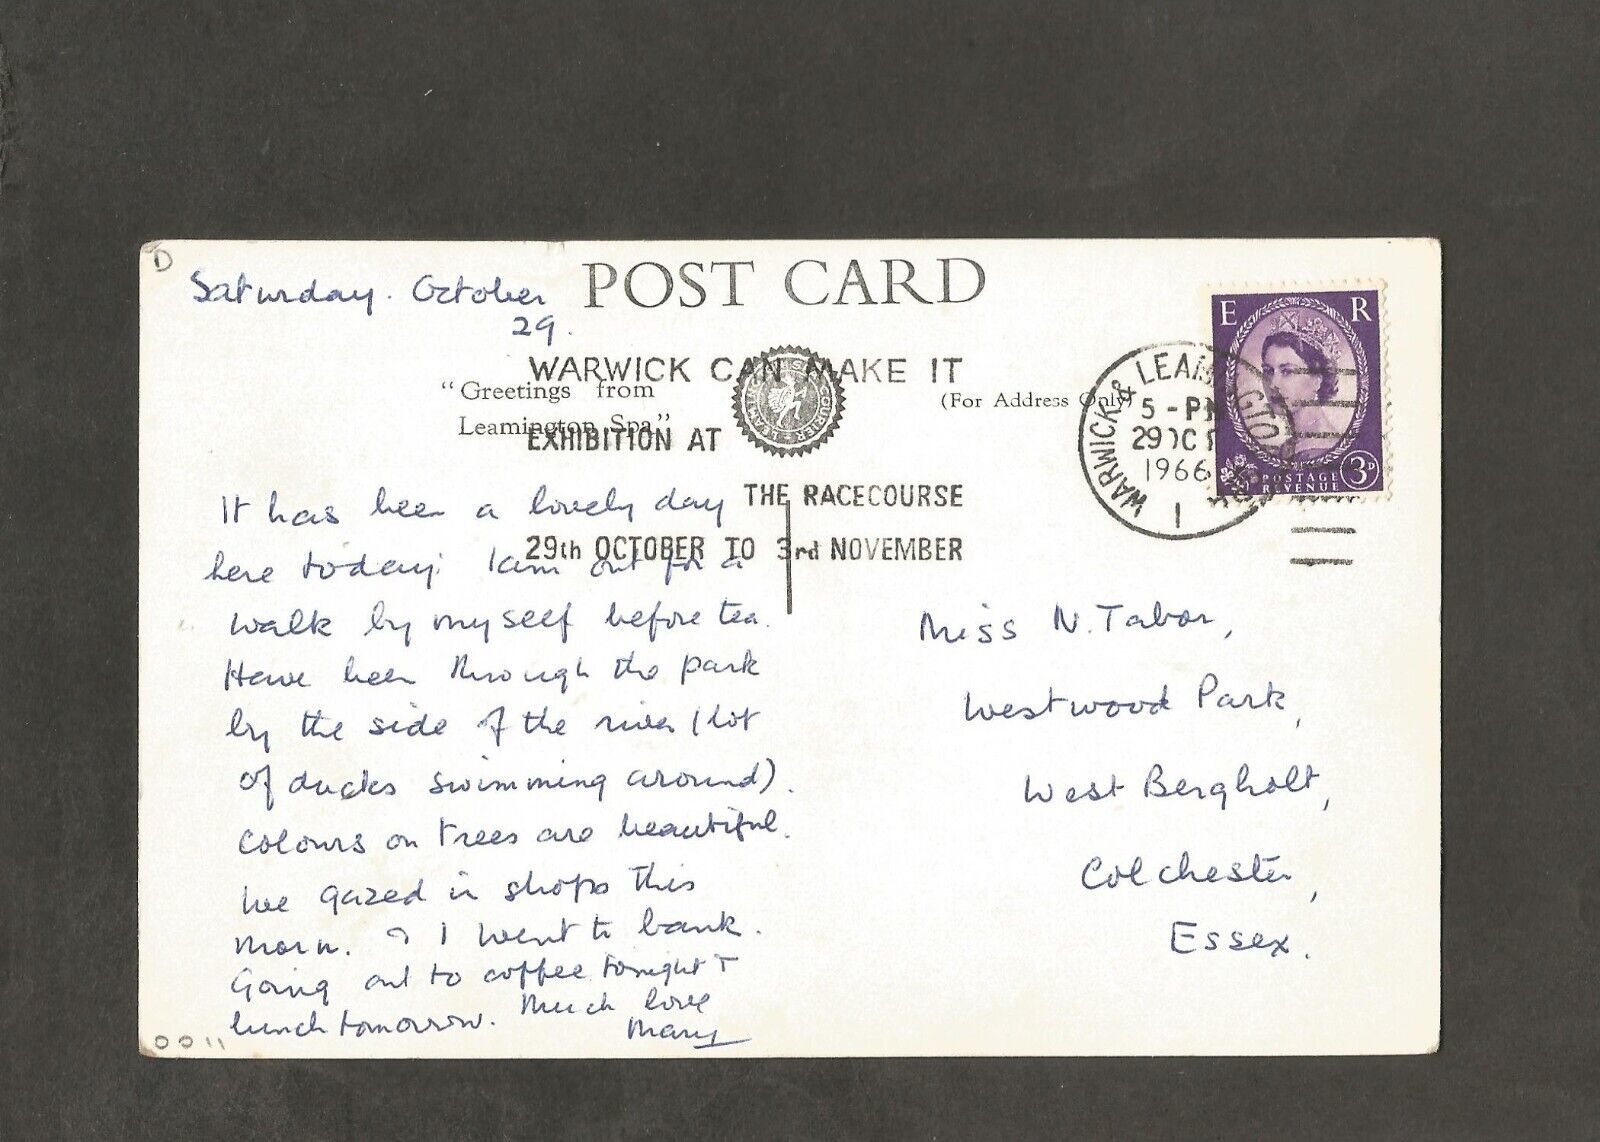 D
Saturday. October
29.
POST CARD
WARWICK CAN MAKE IT
EXHIBITION AT
THE RACECOURSE
29th OCTOBER TO 3rd NOVEMBER
"Greetings from
Leamington Spa"
(For Address Only)
WARWICK & LEAMINGTON SPA
5 - PM
29 OCT
1966
1
E R
POSTAGE
REVENUE
3D
It has been a lovely day
here today. I am out for a
walk by myself before tea.
Have been through the park
by the side of the river (lot
of ducks swimming around).
Colours on trees are beautiful.
We gazed in shops this
morn. & I went to bank.
Going out to coffee tonight +
lunch tomorrow. Much love
Mary
Miss N. Tabor,
Westwood Park,
West Bergholt,
Colchester,
Essex.
0011